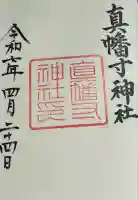 真幡寸神社
真幡寸
神社印
令和六年四月二十四日